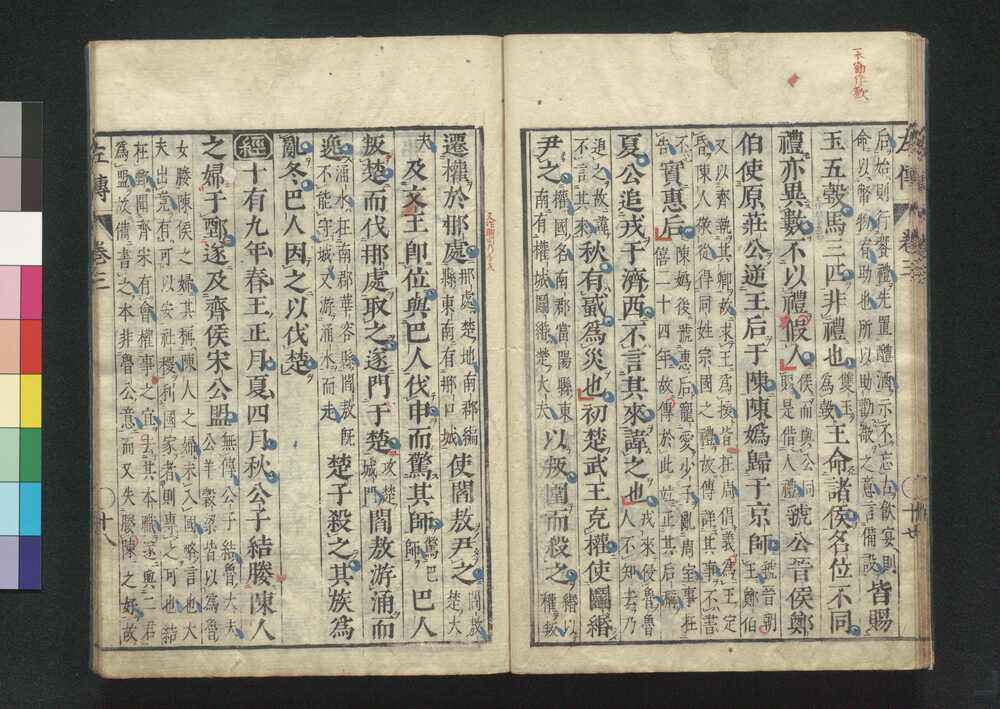 一本勸作歡
后始則行饗禮先置醴酒示不忘古飲宴則
命以幣物宥助也所以助勸敬之意言備設
皆賜
玉五瑴馬三匹非禮也
雙玉
為瑴
王命諸侯名位不同
禮亦異數不以禮假人
侯而與公同
賜是借人禮
虢公晉侯鄭
伯使原莊公逆王后于陳陳媯歸于京師
虢晉朝
王鄭伯
又以齊執其卿故求王為援皆在周倡義為王定
昏陳人敬從得同姓宗國之禮故傳詳其事不書
不
告
實惠后
陳媯後號惠后寵愛少子亂周室事在
僖二十四年故傳於此並正其后稱
夏公追戎于濟西不言其來諱之也
戎來侵魯魯
人不知去乃
追之故諱
不言其來
秋有蜮為災也初楚武王克權使鬬緡
尹之
權國名南郡當陽縣東
南有權城鬬緡楚大夫
以叛圍而殺之
緡以
權叛
左傳 卷三
遷權於那處
那處楚地南郡編
縣東南有那口城
使閻敖尹之
閻敖
楚大
夫
及文王卽位與巴人伐申而驚其師
驚巴
師
巴人
叛楚而伐那處取之遂門于楚
攻楚
城門
閻敖游涌而
逸
涌水在南郡華容縣閻敖既
不能守城又游涌水而走
楚子殺之其族為
亂冬巴人因之以伐楚
經十有九年春王正月夏四月秋公子結媵陳人
之婦于鄄遂及齊侯宋公盟
無傳公子結魯大夫
公羊穀梁皆以為魯
女媵陳侯之婦其稱陳人之婦未入國略言也大
夫出竟有可以安社稷利國家者則專之可也結
在鄄聞齊宋有會權事之宜去其本職遂與二君
為盟故備書之本非魯公意而又失媵陳之好故
左傳 卷三 十八